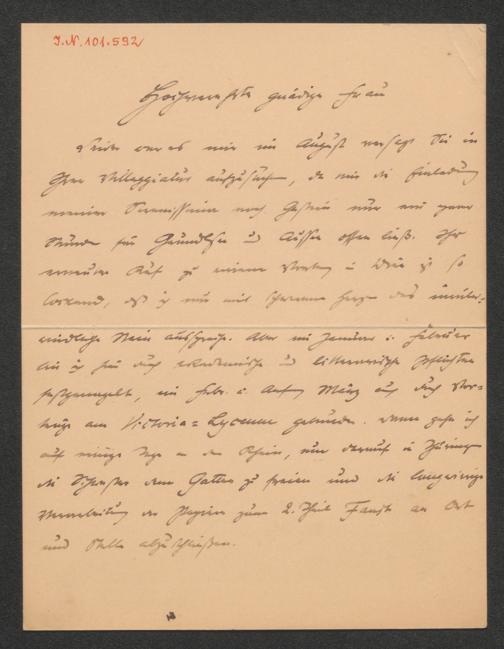 I.N. 101.592
Hochverehrte gnädige Frau
Leider war es mir im August versagt Sie in
Ihrer Villeggiatur aufzusuchen, da mir die Einladung
meiner nach Gastein nur ein paar
Stunden für Grundlsee u Aussee offen ließ. Ihr
erneuter Ruf zu einem Vortrag in Wien ist so
lockend, daß ich nur mit schwerem Herzen das unüber=
windliche Nein ausspreche. Aber im Januar u. Februar
bin ich hier durch akademische u litterarische Pflichten
festgenagelt, im Febr. u. Anfang März auch durch Vor=
träge am Victoria=Lyceum gebunden. Dann gehe ich
auf einige Tage an den Rhein, um darauf in Thüringen
die dem Gatten zu freien und die langwierige
Verarbeitung der Papiere zum 2. Theil Faust an Ort
und Stelle abzuschließen.